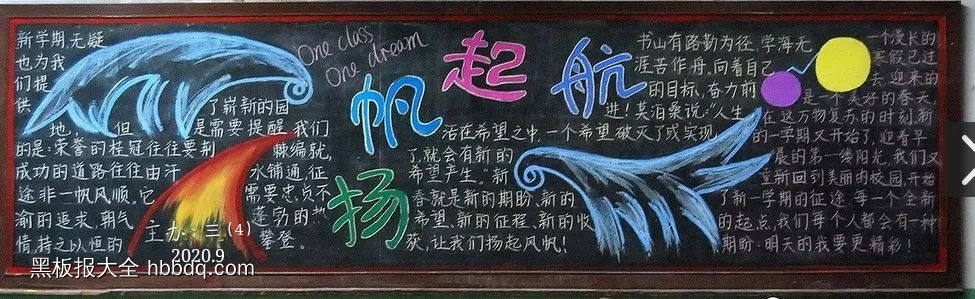 新学期,无疑
也为我
们提
供 了崭新的园
地,但 是需要提醒 我们
的是:荣誉的桂冠往往要荆 棘编就,
成功的道路往往由汗 水铺通,征
途非一帆风顺。它 需要忠贞不
渝的追求,朝气 蓬勃的热
情,持之以恒的 攀登。
主办:三(4)
2020.9
黑板报大全 hbbdq.com
One class
One dream
扬帆起航
书山有路勤为径,学海无
涯苦作舟。向着自己
的目标,奋力前
进!莫泊桑说:“人生
活在希望之中 一个希望破灭了或实现
了,就会有新的
希望产生。”新
春就是新的期盼、新的
希望、新的征程、新的收
获,让我们扬起风帆!
一个漫长的
寒假已过
去,迎来的
是一个美好的春天,
在这万物复苏的时刻,新
的一学期又开始了,迎着早
晨的第一缕阳光,我们又
重新回到美丽的校园,开始
了新一学期的征途,每一个全新
的起点,我们每个人都会有一种
期盼:明天的我要更精彩!